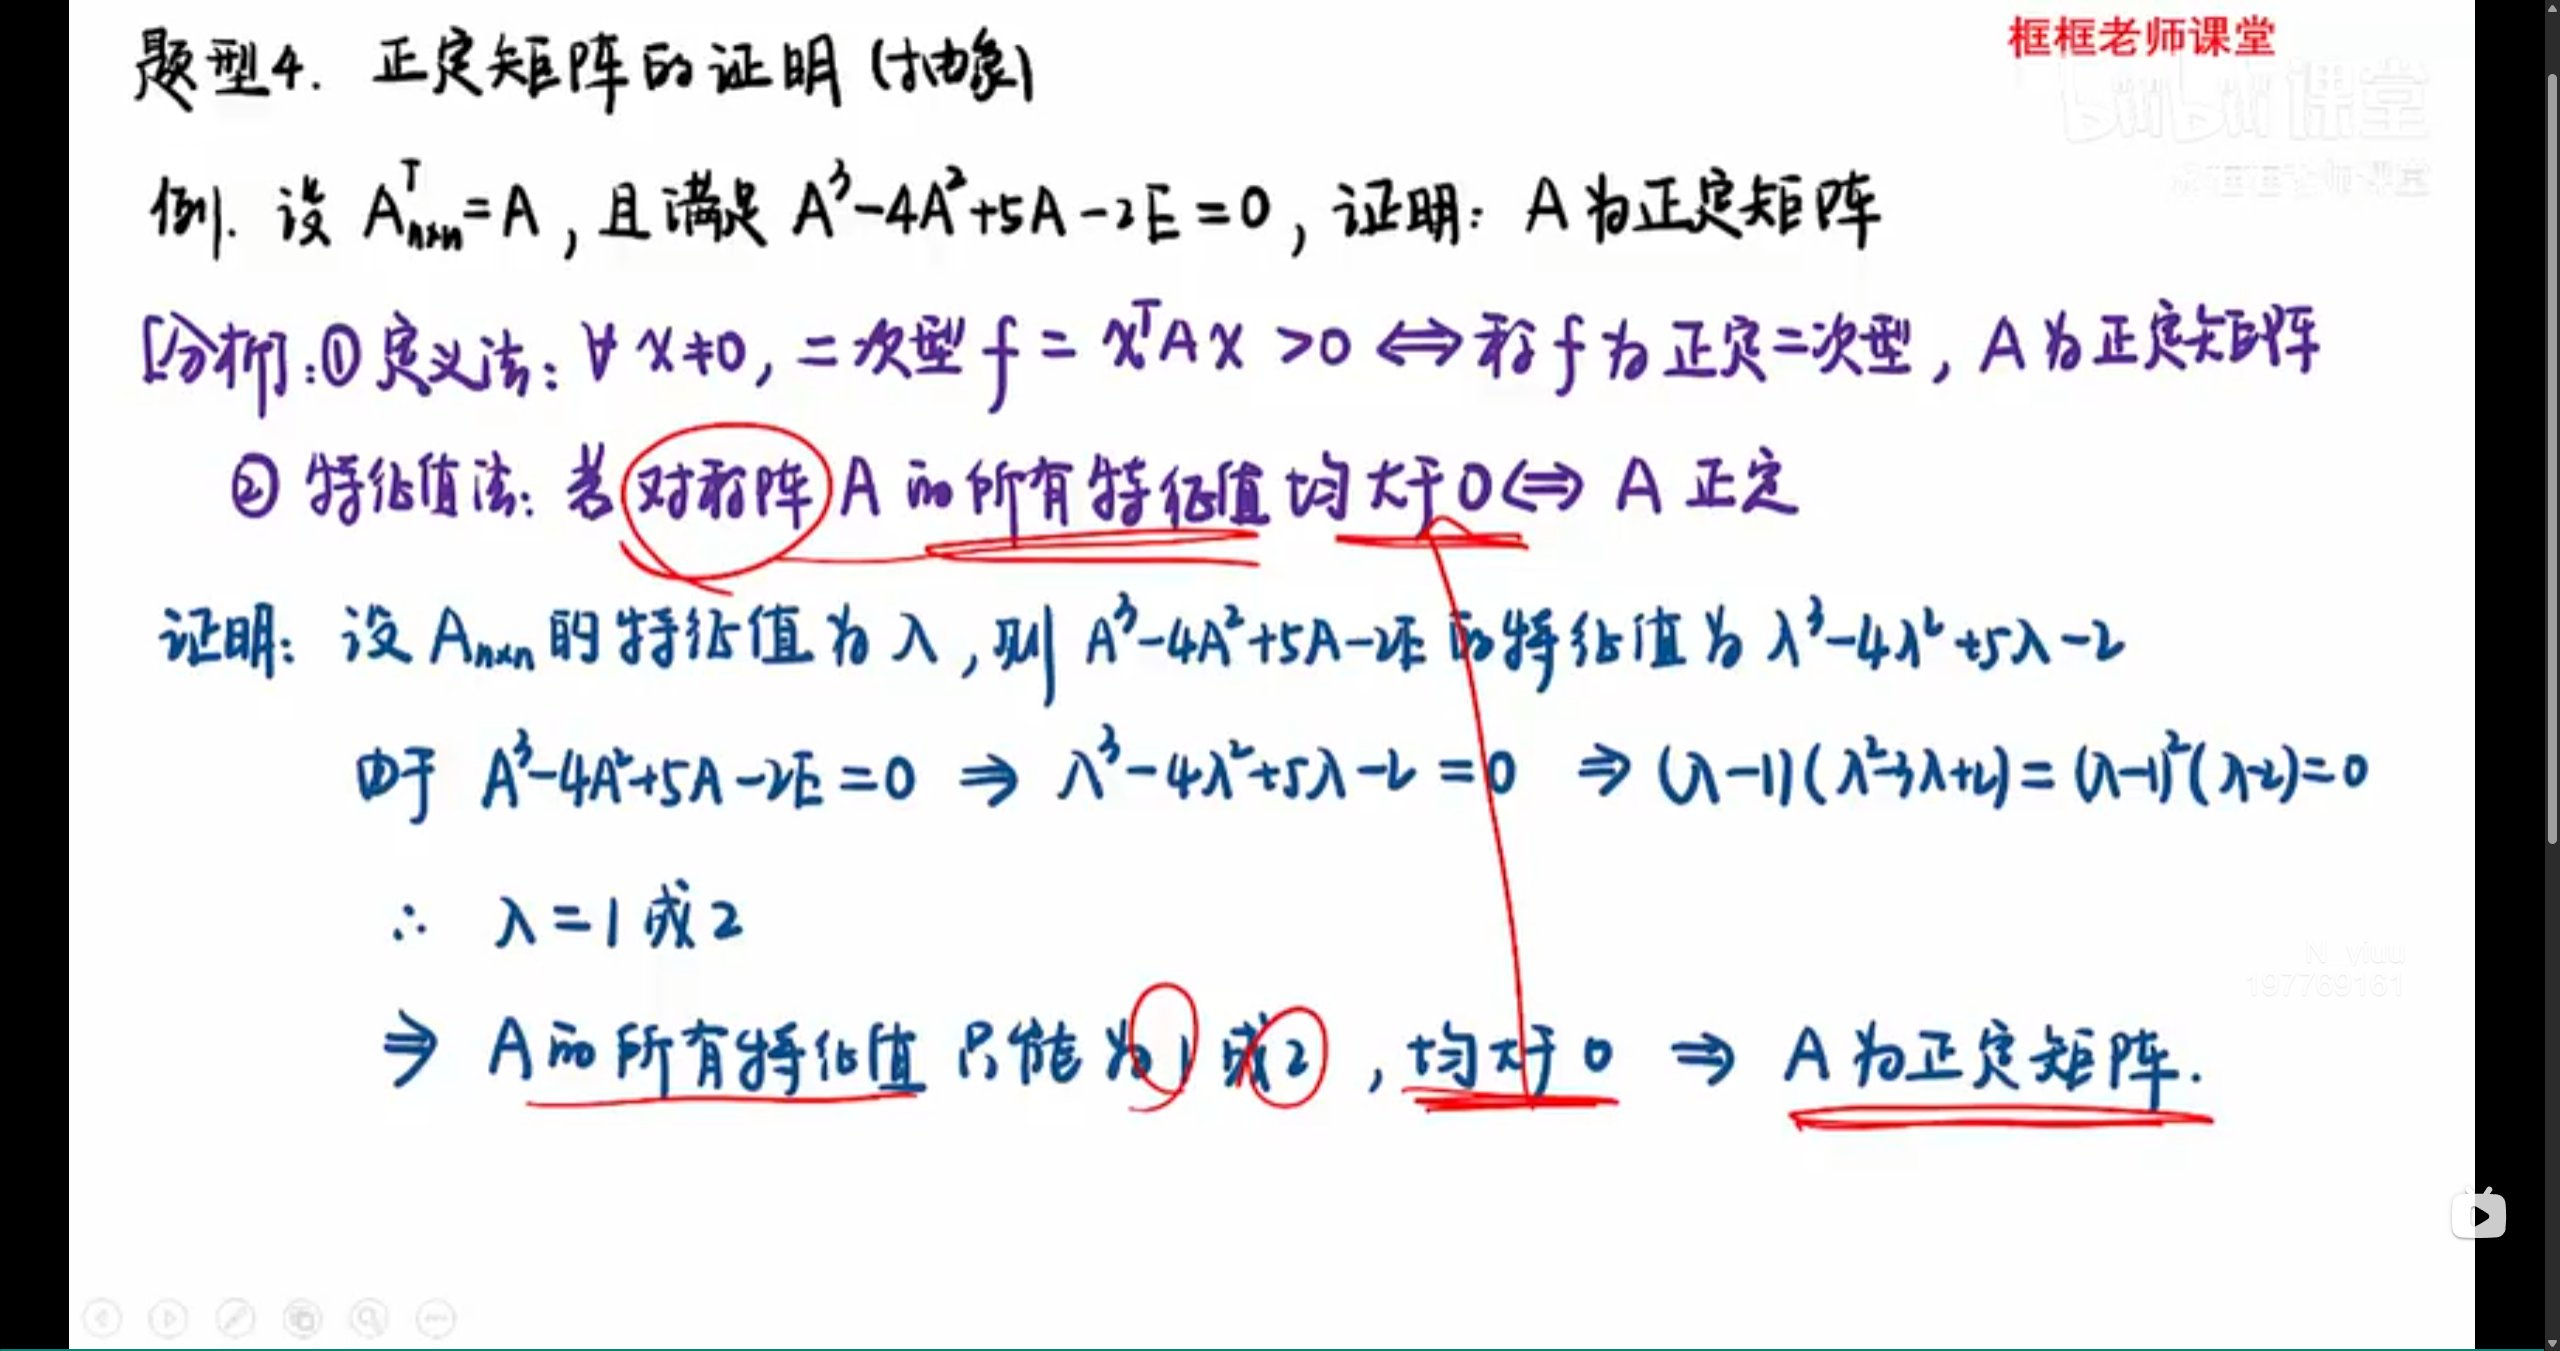 框框老师课堂
bilibili课堂
题型4. 正定矩阵的证明 (抽象)
例. 设 Aᵀₙₓₙ=A, 且满足 A³-4A²+5A-2E=0, 证明: A为正定矩阵
[分析]: ①定义法: ∀x≠0, 二次型 f = xᵀAx >0 ⇔ 称f为正定二次型, A为正定矩阵
② 特征值法: 若对称阵A的所有特征值均大于0⇔ A正定
证明: 设Aₙₓₙ的特征值为λ, 则 A³-4A²+5A-2E的特征值为λ³-4λ²+5λ-2
由于 A³-4A²+5A-2E=0 ⇒ λ³-4λ²+5λ-2=0 ⇒ (λ-1)(λ²-3λ+2)=(λ-1)²(λ-2)=0
∴ λ=1或2
N_yiuu
197769161
⇒ A的所有特征值只能为1或2, 均大于0 ⇒ A为正定矩阵.